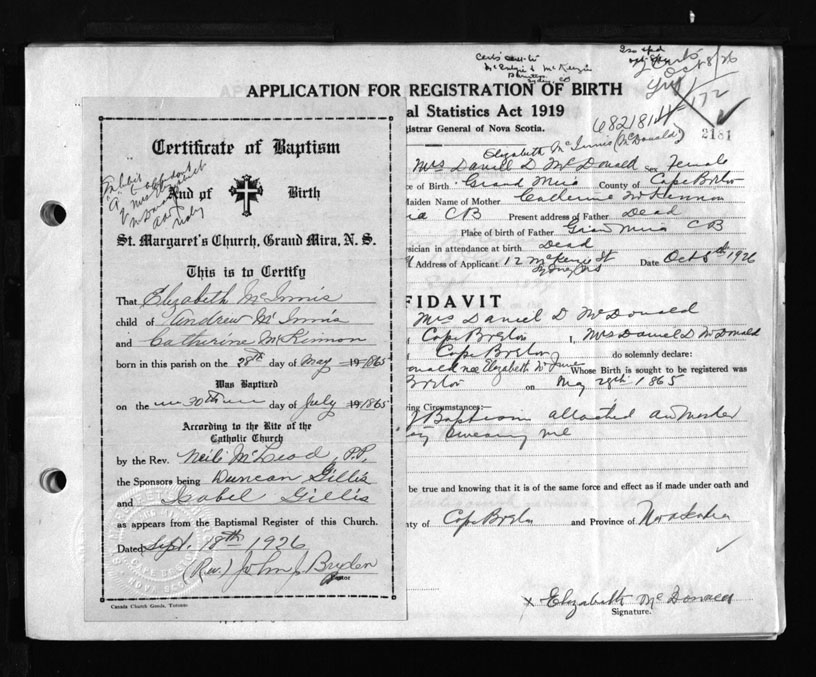 APPLICATION FOR REGISTRATION OF BIRTH
al Statistics Act 1919
gistrar General of Nova Scotia.
68218144
172
2181
Oct 8/26
Elizabeth McInnis (McDonald)
Mrs Daniel D McDonald Sex Female
ce of Birth Grand Mira County of Cape Breton
aiden Name of Mother Catherine McKinnon
ra CB Present address of Father Dead
Place of birth of Father Grand Mira CB
sician in attendance at birth Dead
Address of Applicant 12 McKenzie St Date Oct 8th 1926
FIDAVIT
Mrs Daniel D McDonald
Cape Breton I, Mrs Daniel D McDonald
Cape Breton do solemnly declare:
onald nee Elizabeth McInnis Whose Birth is sought to be registered was
Breton on May 28th 1865
ing Circumstances:—
Baptism attached as marked
be true and knowing that it is of the same force and effect as if made under oath and
ty of Cape Breton and Province of Nova Scotia
x Elizabeth McDonald
Signature.
Certificate of Baptism
And of Birth
St. Margaret's Church, Grand Mira, N. S.
This is to Certify
That Elizabeth McInnis
child of Andrew McInnis
and Catherine McKinnon
born in this parish on the 28th day of May 191865
Was Baptized
on the 30th day of July 191865
According to the Rite of the
Catholic Church
by the Rev. Neil McLeod, P.P.
the Sponsors being Duncan Gillis
and Isabel Gillis
as appears from the Baptismal Register of this Church.
Dated Sept. 18th 1926
(Rev.) John J Bryden
Pastor
Canada Church Goods, Toronto